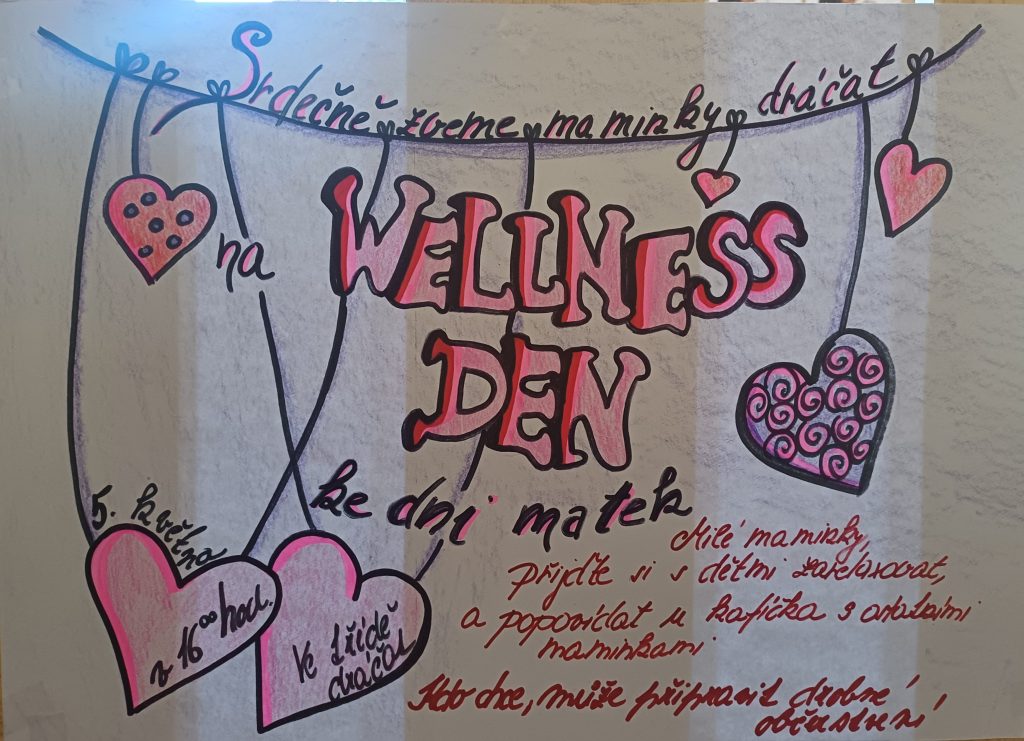 Srdečně zveme maminky dráčat
na
WELLNESS
DEN
ke dni matek
5. května
v 16°° hod.
Ve třídě
dráčat
Milé maminky,
přijďte si s dětmi zarelaxovat,
a popovídat u kafíčka s ostatními
maminkami
Kdo chce, může připravit drobné
občerstvení